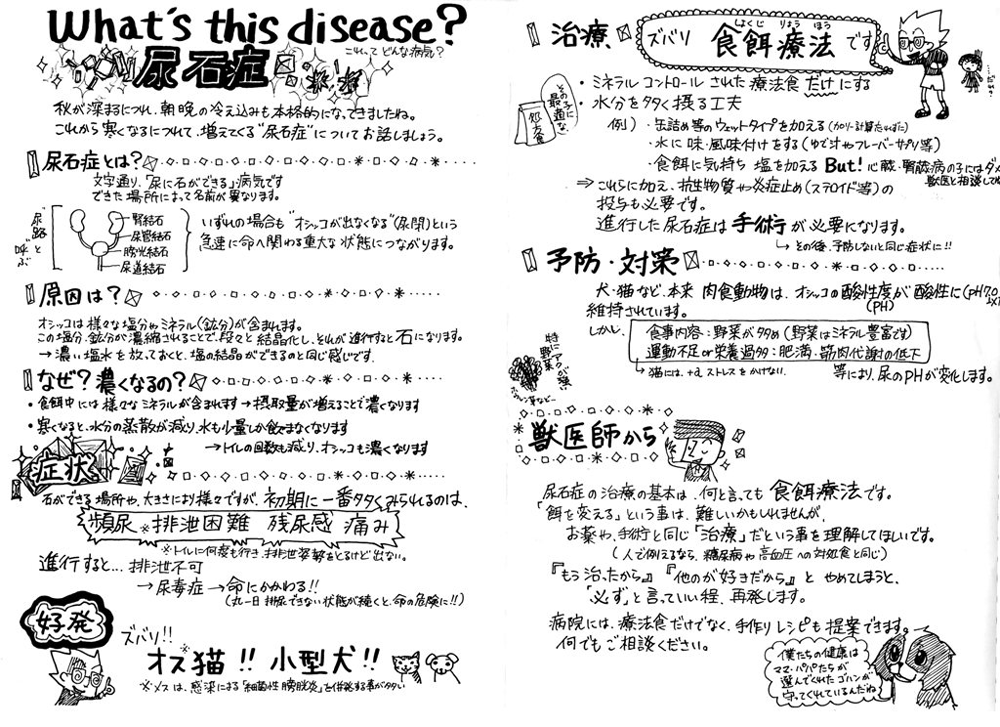 What's this disease?
これってどんな病気?
尿石症
秋が深まるにつれ、朝晩の冷え込みも本格的になってきましたね。
これから寒くなるにつれて、増えてくる"尿石症"についてお話しましょう。
尿石症とは?
文字通り、「尿に石ができる」病気です
できた場所によって名前が異なります。
"尿路"と呼ぶ
腎結石
尿管結石
膀胱結石
尿道結石
いずれの場合も"オシッコが出なくなる"(尿閉)という
急速に命へ関わる重大な状態につながります。
原因は?
オシッコは様々な塩分やミネラル(鉱分)が含まれます。
この塩分、鉱分が濃縮されることで、段々と結晶化し、それが進行すると石になります。
→濃い塩水を放っておくと、塩の結晶ができるのと同じ感じです。
なぜ?濃くなるの?
・食餌中には様々なミネラルが含まれます→摂取量が増えることで濃くなります
・寒くなると、水分の蒸散が減り、水も少量しか飲まなくなります
→トイレの回数も減り、オシッコも濃くなります
症状
石ができる場所や、大きさにより様々ですが、初期に一番多くみられるのは、
頻尿※ 排泄困難 残尿感 痛み
※トイレに何度も行き、排泄姿勢をとるけど出ない。
進行すると… 排泄不可
→尿毒症→命にかかわる!!
(丸一日排尿できない状態が続くと、命の危険に!!)
好発
ズバリ!!
オス猫!! 小型犬!!
※メスは、感染による「細菌性膀胱炎」を併発する事が多い
治療
ズバリ 食餌療法です
しょくじ りょうほう
・ミネラルコントロールされた療法食だけにする
・水分を多く摂る工夫
その子に最適な、
処方食
例)・缶詰め等のウェットタイプを加える(カロリー計算忘れずに)
・水に味・風味付けをする(ゆで汁やフレーバーサプリ等)
・食餌に気持ち塩を加える But! 心臓・腎臓病の子にはダメ
獣医と相談して
⇒これらに加え、抗生物質や炎症止め(ステロイド等)の
投与も必要です。
進行した尿石症は手術が必要になります。
↳その後、予防しないと同じ症状に!!
予防・対策
犬・猫など、本来肉食動物は、オシッコの酸性度が酸性に(pH7.0
(PH)
維持されています。
しかし、
食事内容:野菜が多め(野菜はミネラル豊富です)
運動不足or栄養過多:肥満、筋肉代謝の低下
特にアクが強い野菜
↳猫には、+αストレスをかけない。
等により、尿のPHが変化します。
獣医師から
尿石症の治療の基本は、何と言っても食餌療法です。
「餌を変える」という事は、難しいかもしれませんが、
お薬や、手術と同じ「治療」だという事を理解してほしいです。
(人で例えるなら、糖尿病や高血圧への対処食と同じ)
『もう治ったから』『他のが好きだから』とやめてしまうと、
「必ず」と言っていい程、再発します。
病院には、療法食だけでなく、手作りレシピも提案できます。
何でもご相談ください。
僕たちの健康は
ママ・パパたちが
選んでくれたゴハンが
守ってくれているんだね